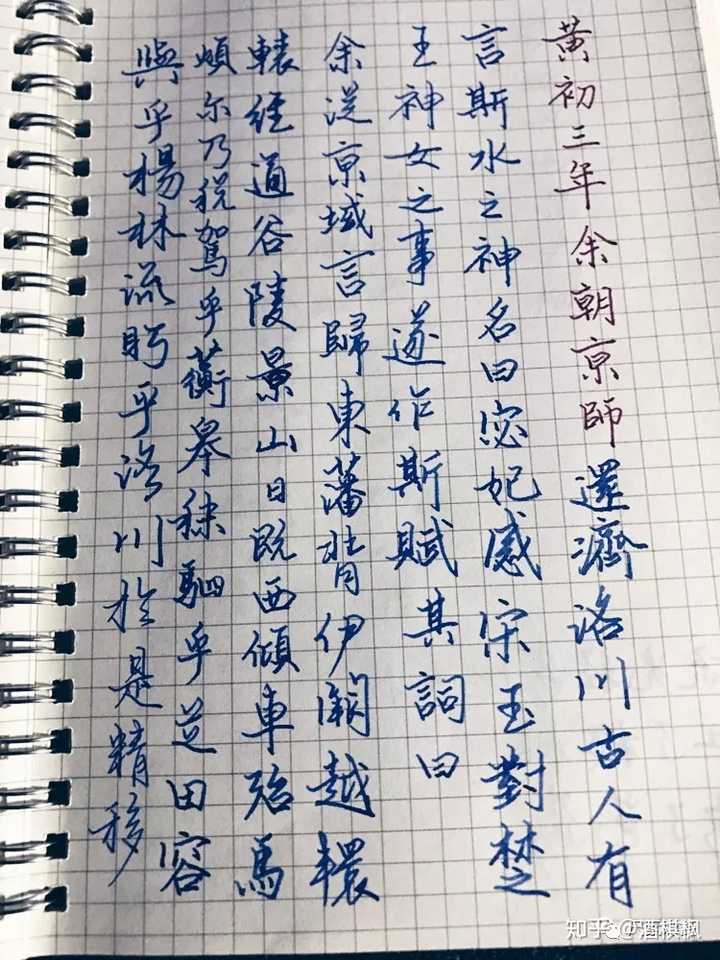 黄初三年余朝京師還濟洛川古人有
言斯水之神名曰宓妃感宋玉對楚
王神女之事遂作斯賦其詞曰
余從京域言歸東藩背伊闕越轘
轅經通谷陵景山日既西傾車殆馬
煩尔乃税駕乎蘅皋秣駟乎芝田容
與乎楊林流眄乎洛川於是精移
知乎 @酒棋枫